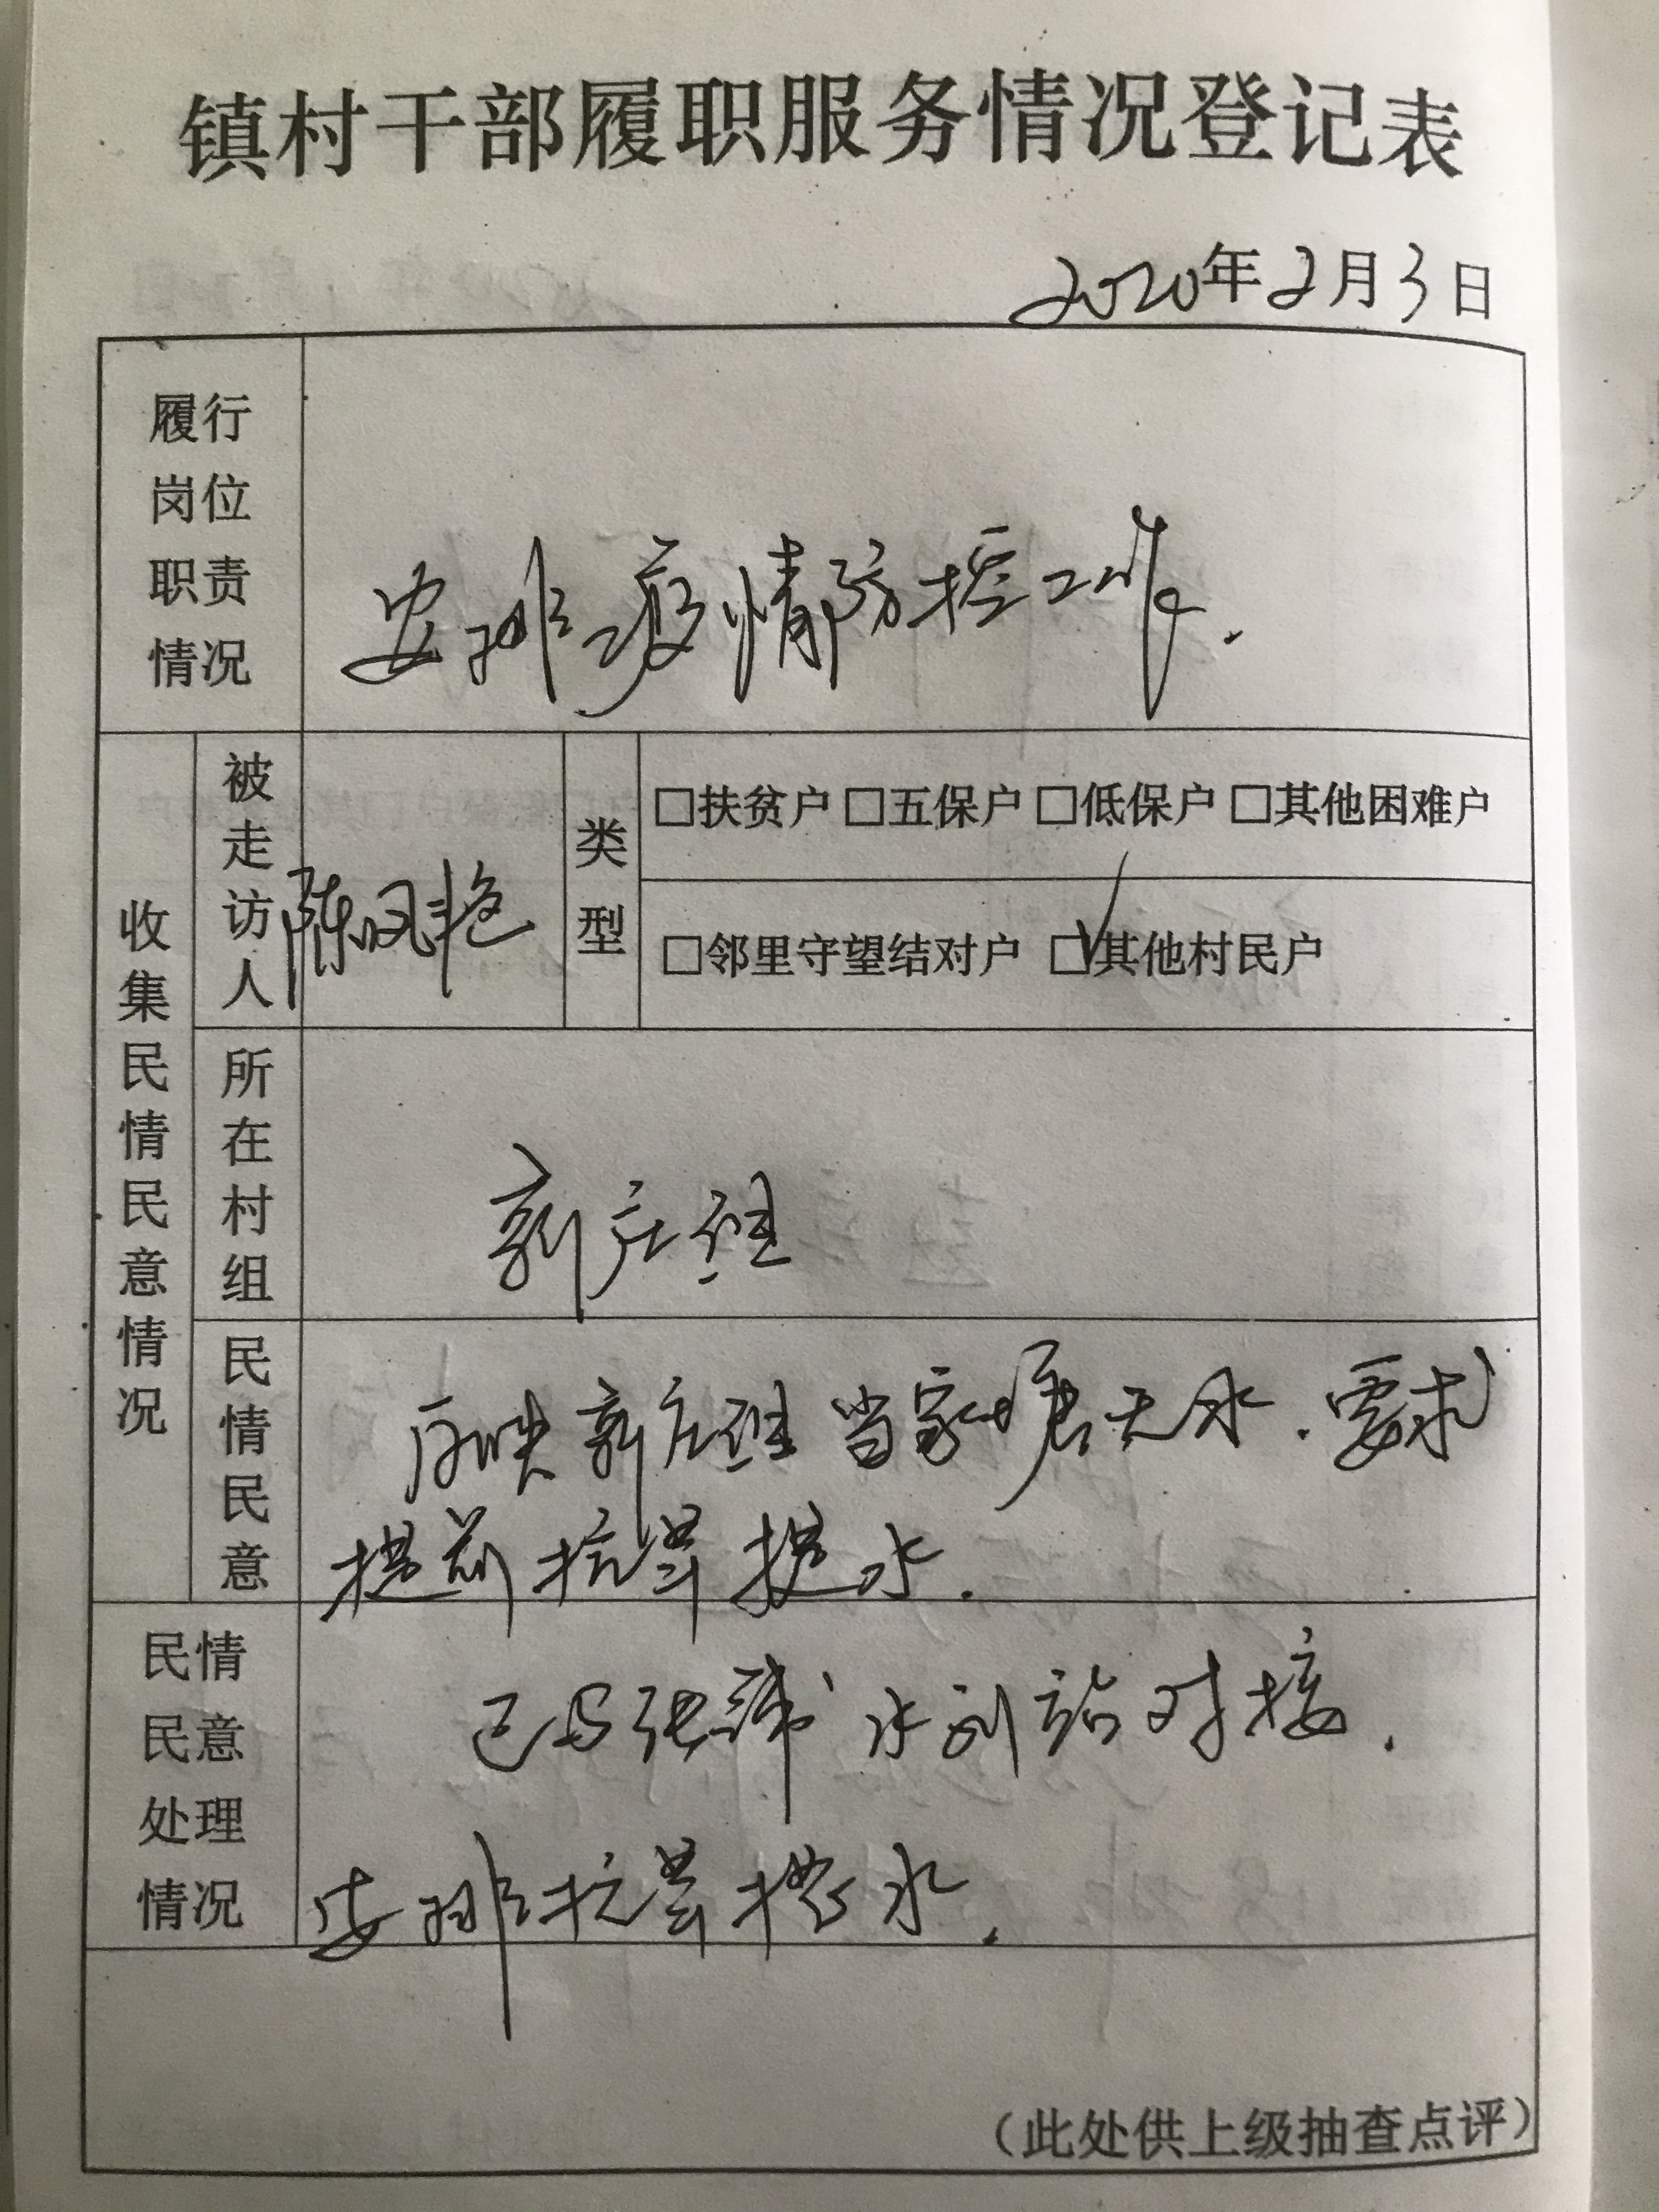 镇村干部履职服务情况登记表
2020年2月3日
履行岗位职责情况
安排疫情防控工作.
收集民情民意情况
被走访人
陈凤艳
类型
□扶贫户 □五保户 □低保户 □其他困难户
□邻里守望结对户 ☑其他村民户
所在村组
新庄组
民情民意
反映新庄组当家塘无水.要求
提前抗旱提水.
民情民意处理情况
已与张 水利站对接.
安排抗旱提水.
（此处供上级抽查点评）